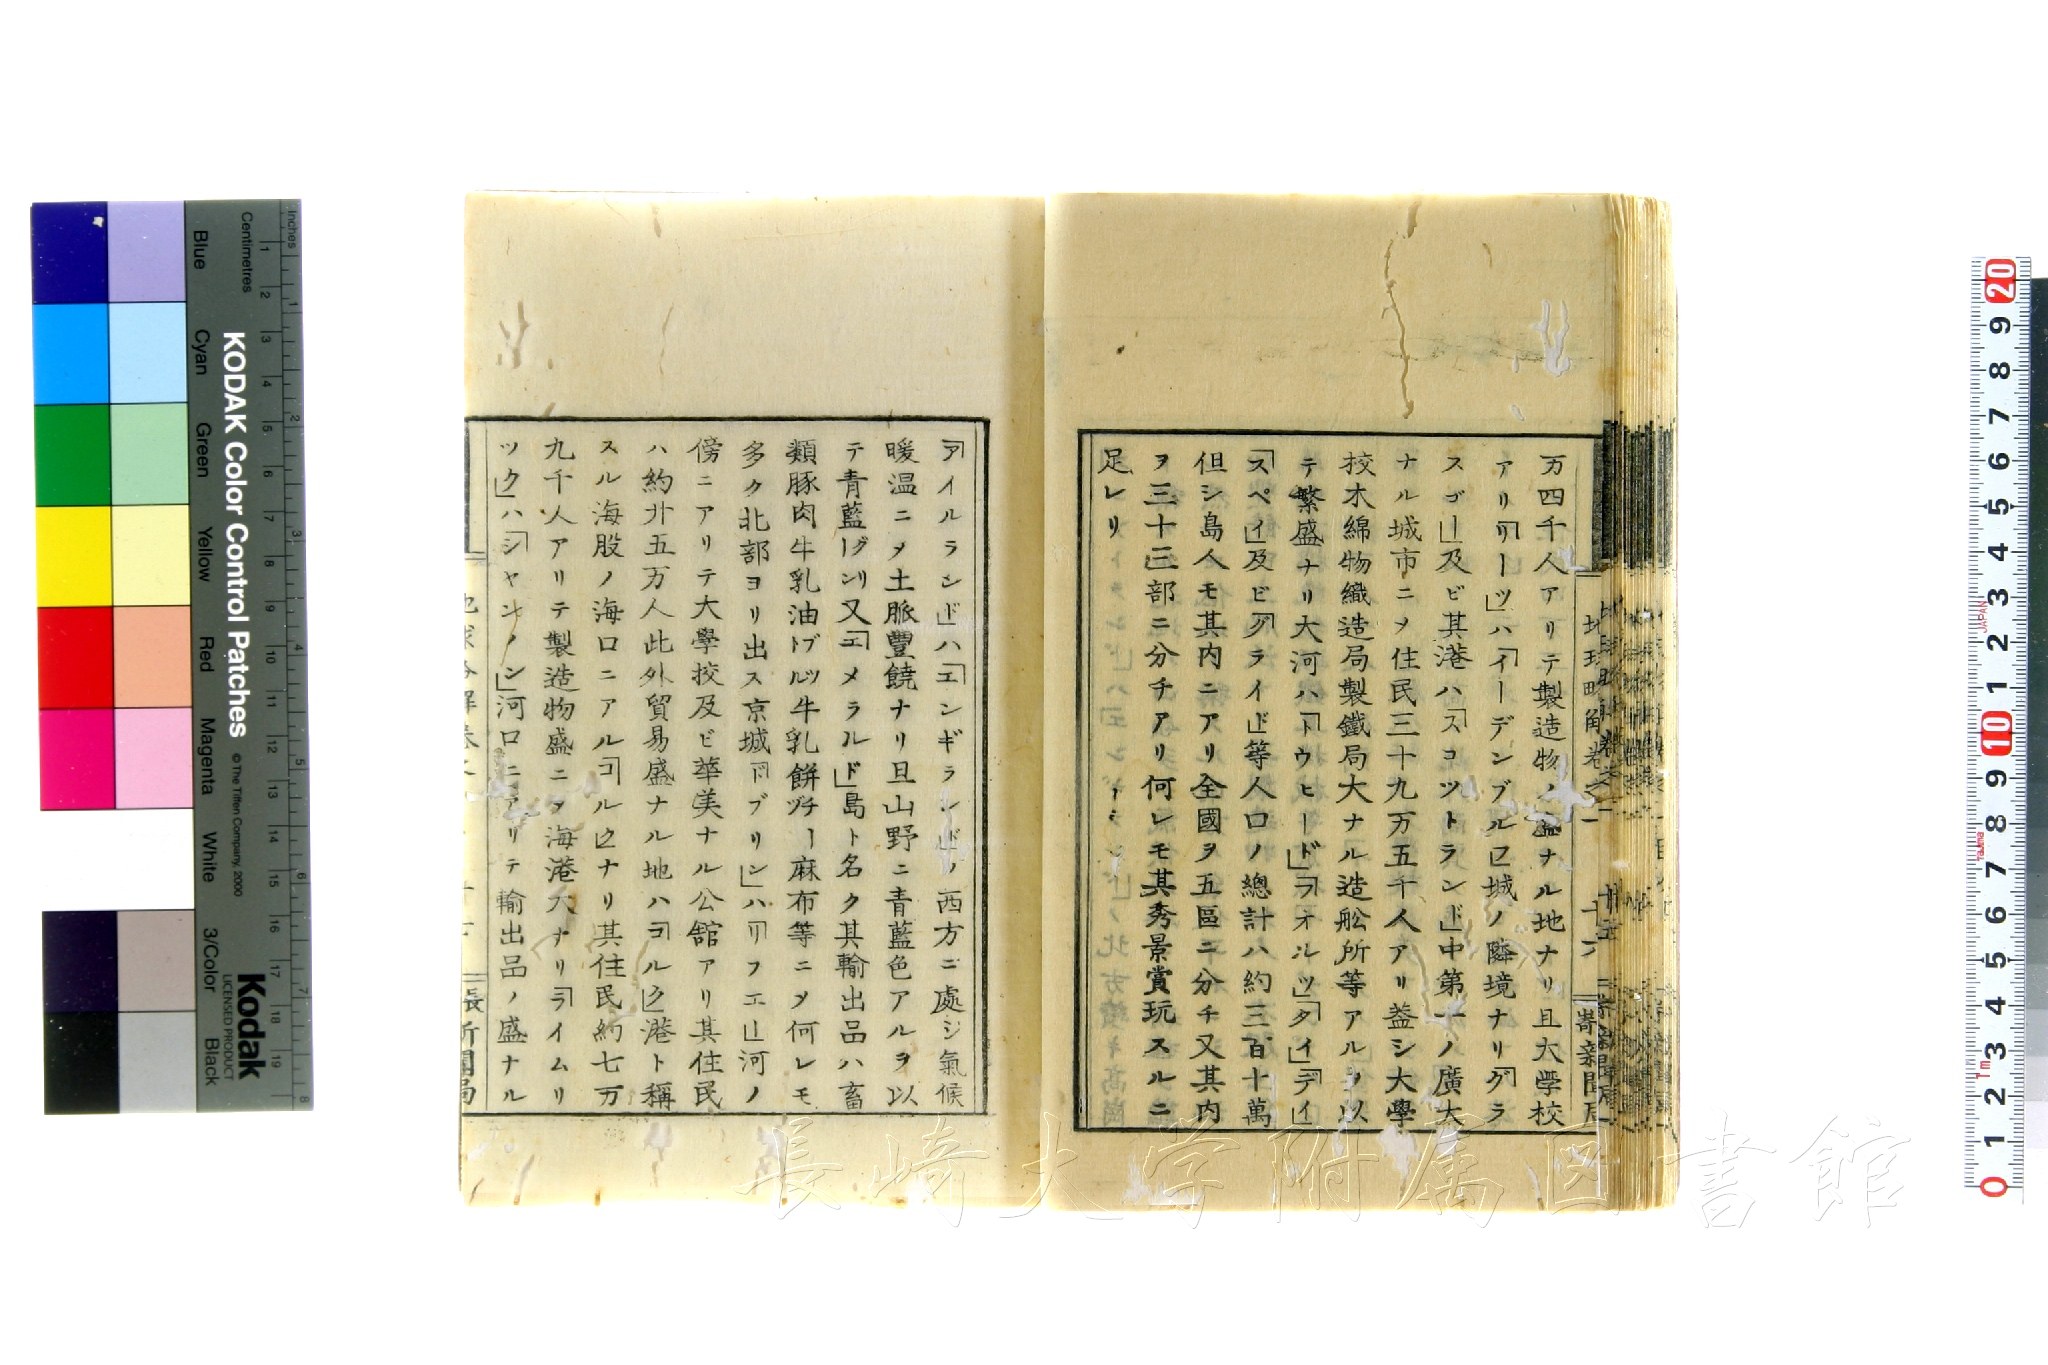 万四千人アリテ製造物ノ盛ナル地ナリ且大学校
アリ「リーツ」ハ「イーデンブルフ」城ノ隣境ナリ「グラ
スゴー」及ビ其港ハ「スコツトランド」中第一ノ廣大
ナル城市ニ乄住民三十九万五千人アリ益シ大學
校木綿物織造局製鐵局大ナル造舩所等アルヲ以
テ繁盛ナリ大河ハ「トウヒード」「フオルツ」「タイ」「デイ」
「スペイ」及ビ「クライド」等人口ノ總計ハ約三百十萬
但シ島人モ其内ニアリ全國ヲ五區ニ分チ又其内
ヲ三十三部ニ分チアリ何レモ其秀景賞玩スルニ
足レリ
「アイルランド」ハ「エンギランド」ノ西方ニ處シ氣候
暖温ニ乄土脈豐饒ナリ且山野ニ青藍色アルヲ以
テ青藍「グリーン」又「エメラルド」島ト名ク其輸出品ハ畜
類豚肉牛乳油牛乳餅麻布等ニ乄何レモ
多ク北部ヨリ出ス京城「ドブリン」ハ「リフエー」河ノ
傍ニアリテ大學校及ビ華美ナル公舘アリ其住民
ハ約廾五万人此外貿易盛ナル地ハ「コルク」港ト稱
スル海股ノ海口ニアル「コルク」ナリ其住民約七万
九千人アリテ製造物盛ニ乄海港大ナリ「ライムリ
ツク」ハ「シヤンノン」河口ニアリテ輸出品ノ盛ナル
地球略解巻之一
十六
崎新聞局
長
KODAK Color Control Patches
© The Tiffen Company, 2000
Kodak
LICENSED PRODUCT
Inches
Centimetres
Blue
Cyan
Green
Yellow
Red
Magenta
White
3/Color
Black
JAPAN
Tajima
長崎大学附属図書館